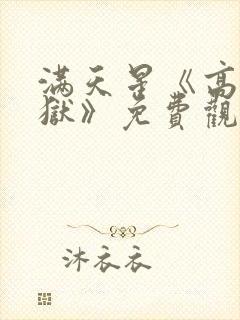 滿天星《高
獄》免費觀
沐衣衣